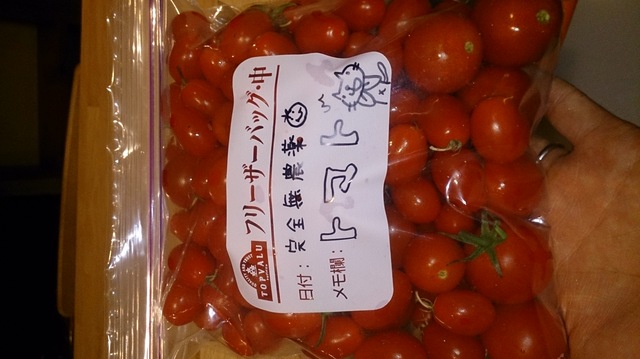 TOPVALU フリーザーバッグ・中
日付: 完全無農薬
メモ欄: トマト